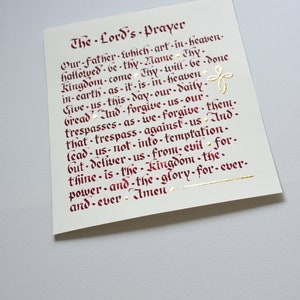 The · Lord's · Prayer
Our · Father · which · art · in · heaven ·
hallowed · be · thy · Name · Thy ·
Kingdom · come · Thy · will · be · done
in · earth · as · it · is · in · heaven ·
Give · us · this · day · our · daily ·
bread · And · forgive · us · our ·
trespasses · as · we · forgive · them ·
that · trespass · against · us · And ·
lead · us · not · into · temptation ·
but · deliver · us · from · evil · for ·
thine · is · the · Kingdom · the ·
power · and · the · glory · for · ever ·
and · ever · Amen